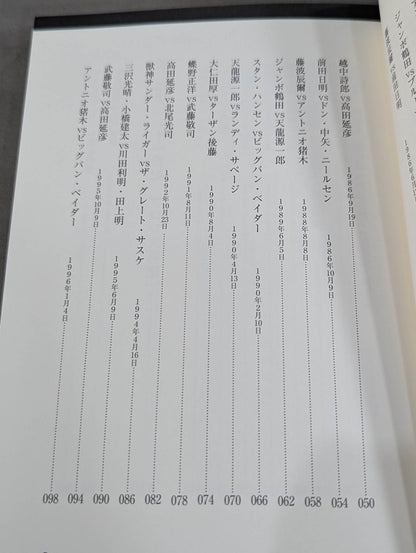 ジャンボ鶴田
越中詩郎vs高田延彦 1986年9月19日 050
前田日明vsドン・中矢・ニールセン 1986年10月9日 054
藤波辰爾vsアントニオ猪木 1988年8月8日 058
ジャンボ鶴田vs天龍源一郎 1989年6月5日 062
スタン・ハンセンvsビッグバン・ベイダー 1990年2月10日 066
天龍源一郎vsランディ・サベージ 1990年4月13日 070
大仁田厚vsターザン後藤 1990年8月4日 074
蝶野正洋vs武藤敬司 1991年8月11日 078
高田延彦vs北尾光司 1992年10月23日 082
獣神サンダー・ライガーvsザ・グレート・サスケ 1994年4月16日 086
三沢光晴・小橋建太vs川田利明・田上明 1995年6月9日 090
武藤敬司vs高田延彦 1995年10月9日 094
アントニオ猪木vsビッグバン・ベイダー 1996年1月4日 098